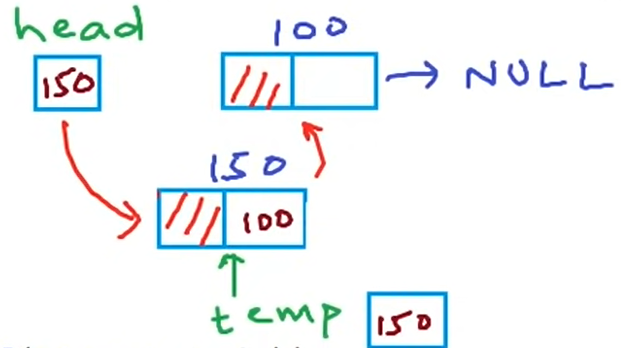 head
100
150
NULL
150
100
temp 150